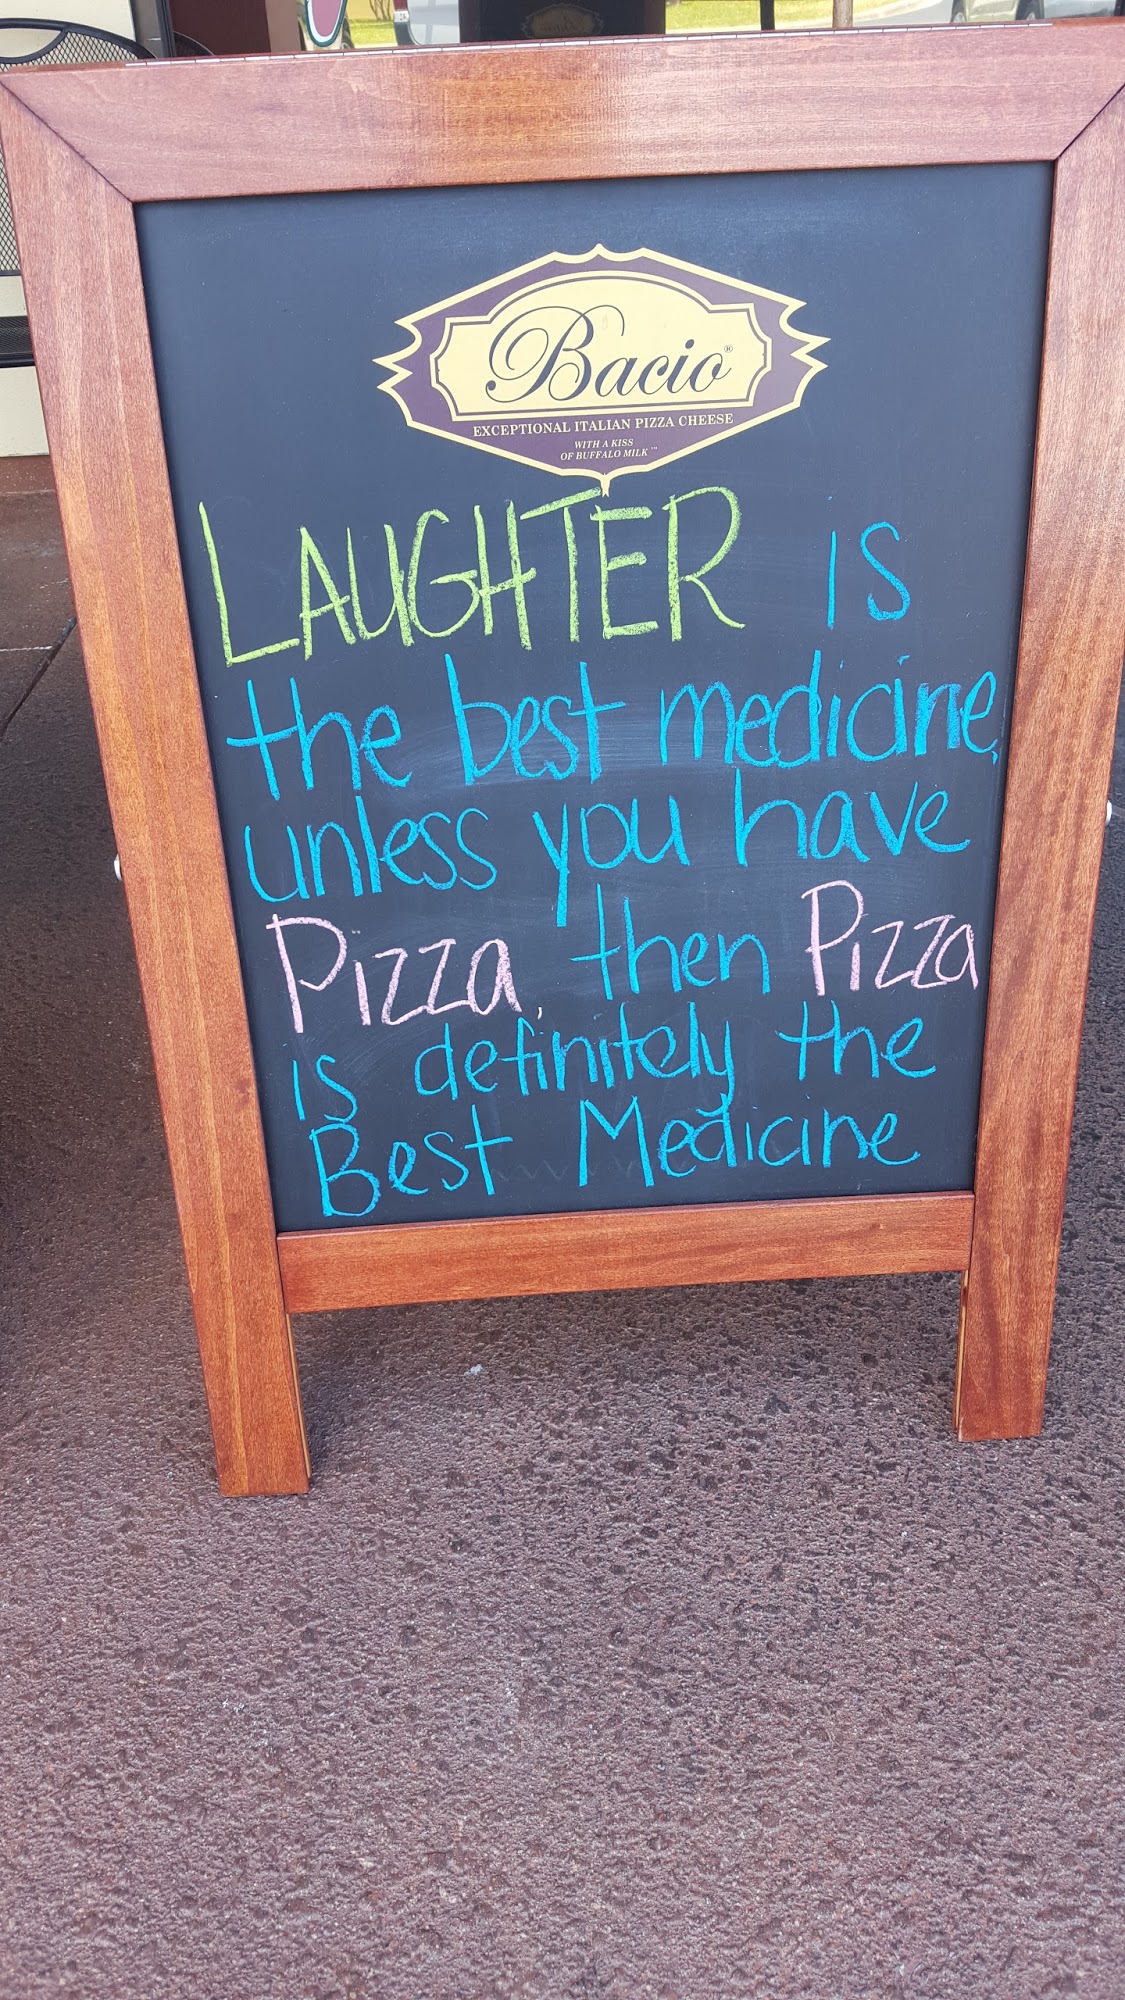 Bacio®
EXCEPTIONAL ITALIAN PIZZA CHEESE
WITH A KISS
OF BUFFALO MILK™
LAUGHTER is
the best medicine,
unless you have
Pizza, then Pizza
is definitely the
Best Medicine